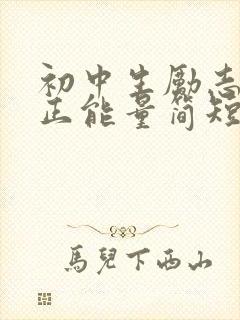 初中生励志
正能量简短
馬兒下西山